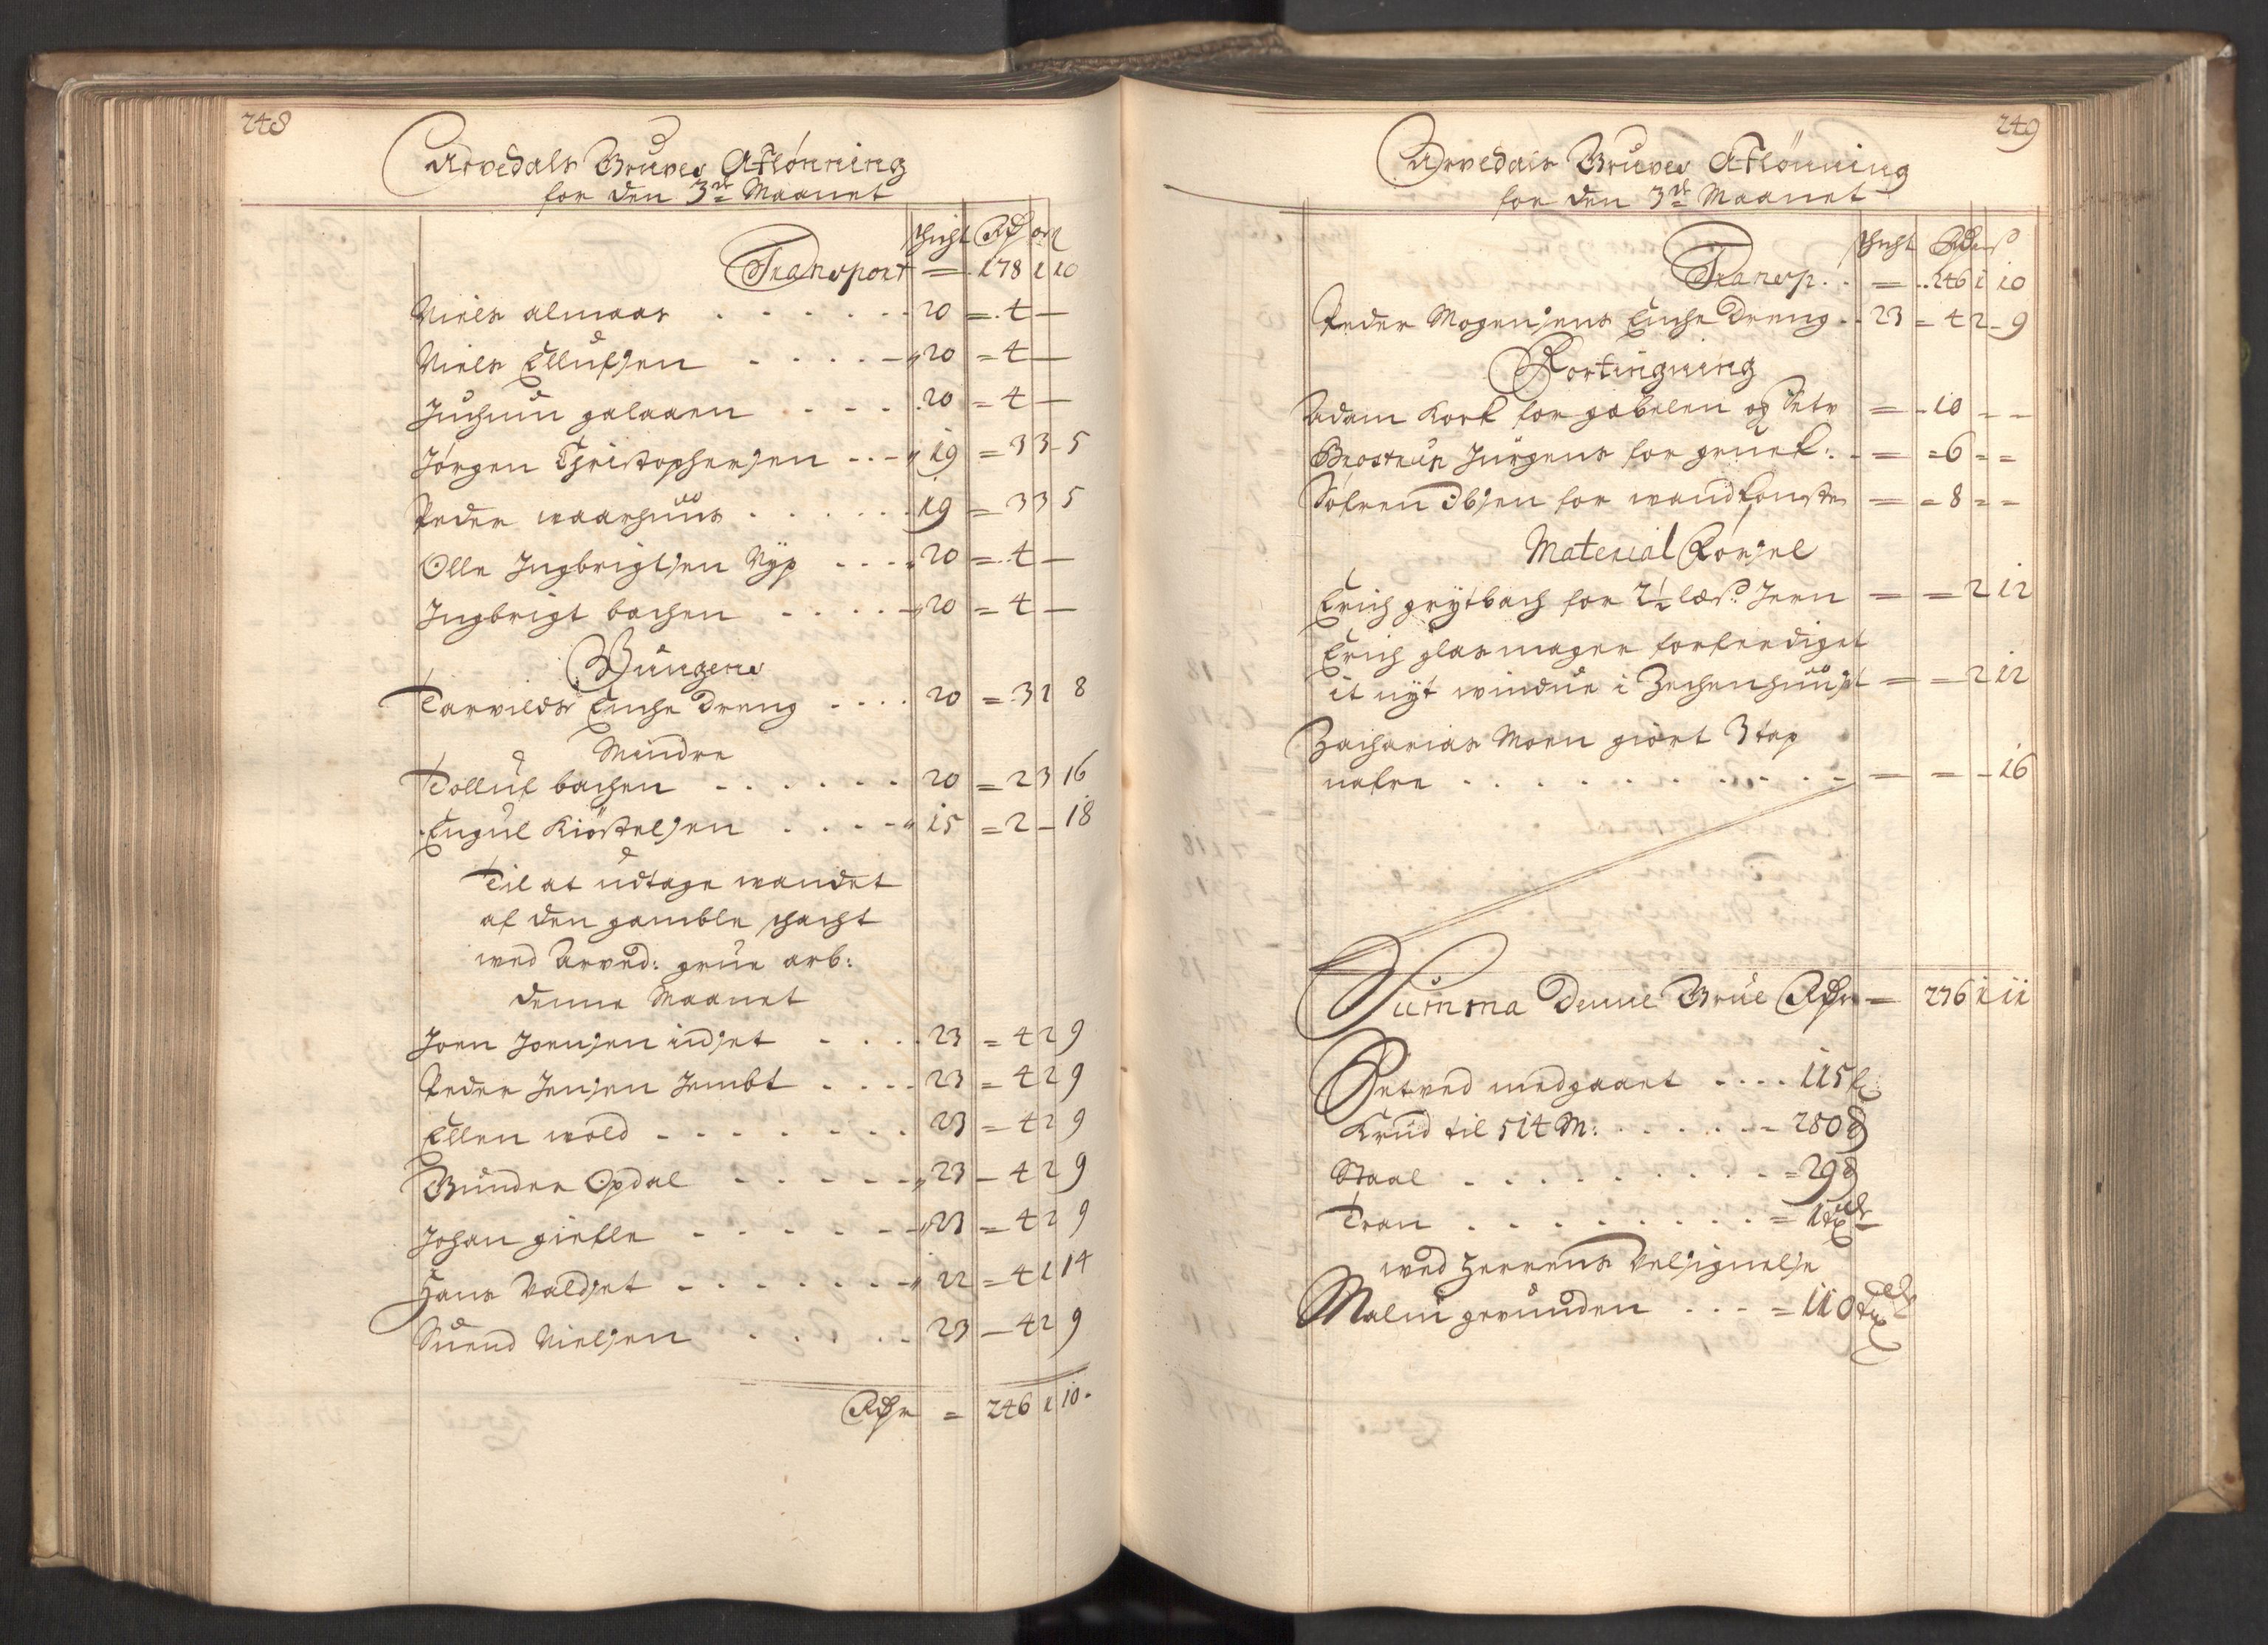 248
Arvedals Gruves Aflönning
for den 3de Maanet
schicht Rdr ort
Transport = 178 1 10
Niels almaas . . . . . . . 20 = 4 —
Niels Ellufsen . . . . . 20 = 4 —
Juchum galaaen . . . . 20 = 4 —
Jörgen Christophersen . . . 19 = 3 3 5
Peder waarhuus . . . . . . 19 = 3 3 5
Olle Ingbrigtsen Nyp . . . . 20 = 4 —
Ingbrigt bachen . . . . . 20 = 4 —
Gungere
Tarvilds Enche dreng . . . . 20 = 3 1 8
Mindre
Tolluf bachen . . . . . . 20 = 2 3 16
Engul Kiöstelsen . . . . . 15 = 2 – 18
Til at udtage wandet
af den gamble schacht
wed Arved: grue arb:
denne Maanet
Joen Joensen indset . . . . 23 = 4 2 9
Peder Jensen Jembt . . . . 23 = 4 2 9
Ellen wold . . . . . . . 23 = 4 2 9
Gunder Opdal . . . . . . 23 – 4 2 9
Johan giefle . . . . . . 23 = 4 2 9
Hans Valdset . . . . . . . 22 = 4 1 14
Suend Nielsen . . . . . . 23 – 4 2 9
Rdr = 246 1 10
249
Arvedals Gruves Aflönning
for den 3de Maanet
schicht Rdr
Transp. . = 246 1 10
Peder Mogensens Enche dreng . . 23 = 4 2 – 9
Fortingning
Adam Kork for gabelen og = 10 – –
Brostrup Jürgens for gruef: . = = 6 = =
Söfren Ibsen for wandkonsten = = 8 = =
Material Körsel
Erich grytbach for 2½ læs Jern = = 2 12
Erich glasmager forferdiget
it nyt windue i Zechenhuuset = – 2 12
Zacharias Moen giört 3 tap
nafre . . . . . . . . . . . = = – 16
Summa Denne Grue Rdr = 276 1 11
Setved medgaaet . . . . 115 f:
Krud til 514 M: . . . . . = 280 ℔
Staal . . . . . . . . . = 29 ℔
Tran . . . . . . . . . = 1
wed Herrens Velsignelse
Malm gevunden . . . = 110